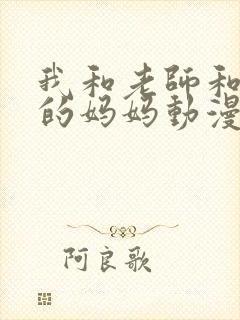 我和老師和
的妈妈動漫
阿良歌